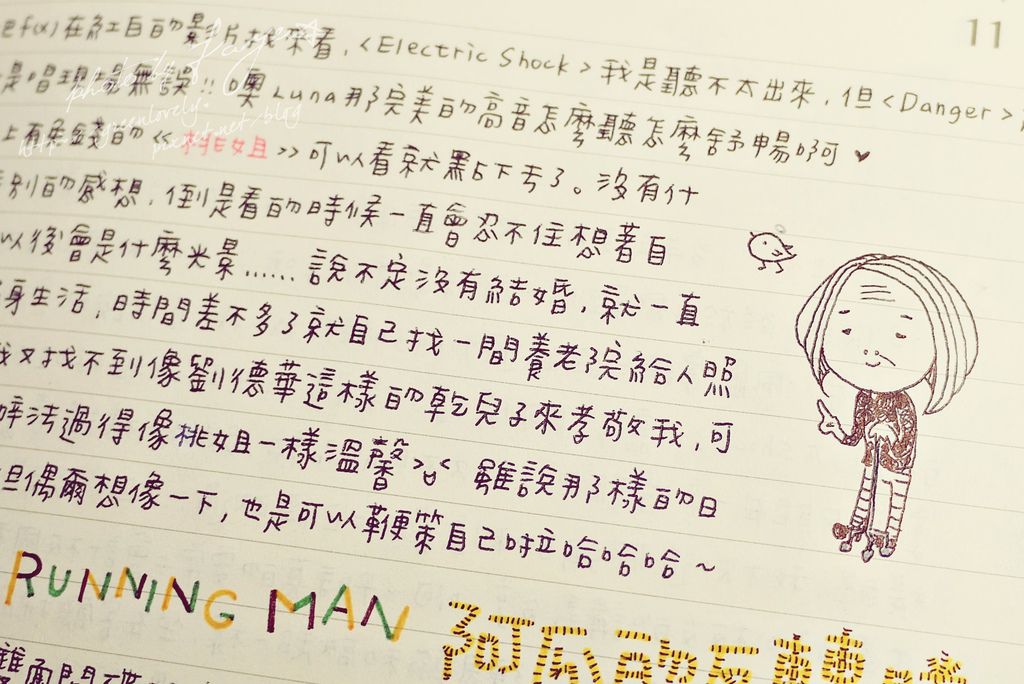 11
把f(x)在紅白的影片找來看,<Electric Shock>我是聽不太出來,但<Danger>
是唱現場無誤!!噢Luna那完美的高音怎麼聽怎麼舒暢啊♥
上有条錢的≪桃姐≫可以看就點下去了。沒有什
特別的感想,倒是看的時候一直會忍不住想著自
以後會是什麼光景......說不定沒有結婚,就一直
身生活,時間差不多了就自己找一間養老院給人照
我又找不到像劉德華這樣的乾兒子來孝敬我,可
辦法過得像桃姐一樣溫馨>"< 雖說那樣的日
但偶爾想像一下,也是可以鞭策自己啦哈哈哈~
RUNNING MAN
photo by Faye
http://greenlovely.pixnet.net/blog